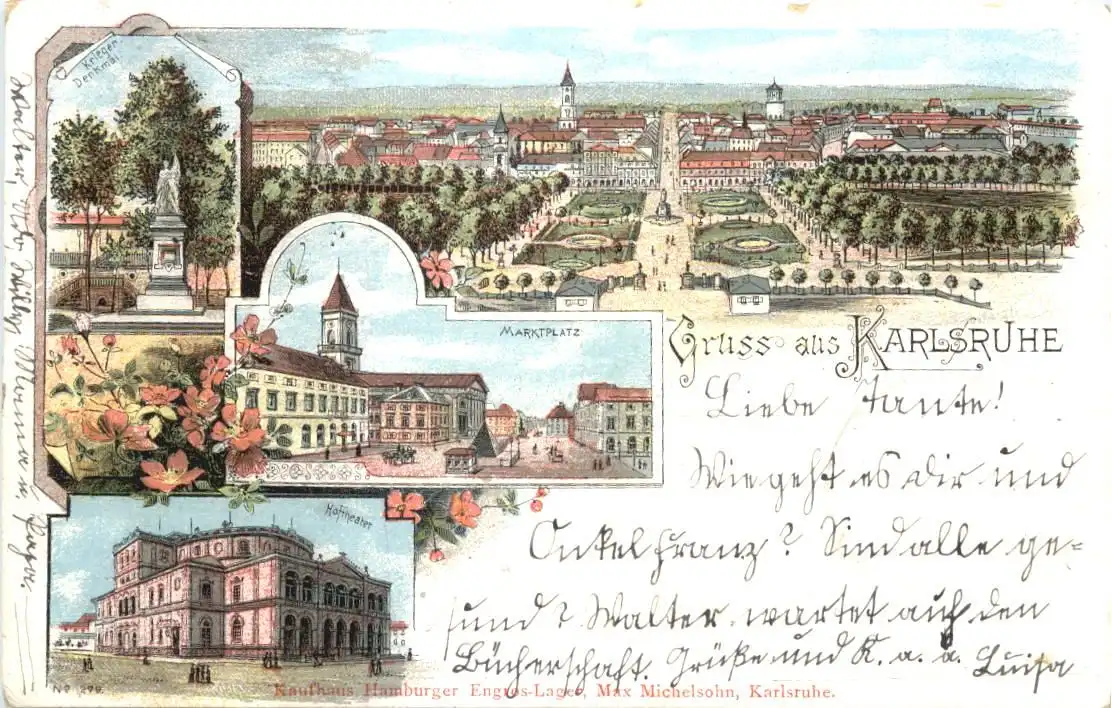 Krieger
Denkmal
MARKTPLATZ
Gruss aus KARLSRUHE
Liebe Tante!
Wie geht es dir und
Onkel Franz? Sind alle ge-
sund? Walter wartet auf den
Bücherschaft. Grüße und K. a. a. Luisa
Hoftheater
No 299.
Kaufhaus Hamburger Engros-Lager, Max Michelsohn, Karlsruhe.
Walter, Otto, Willy, Mama u. Papa.